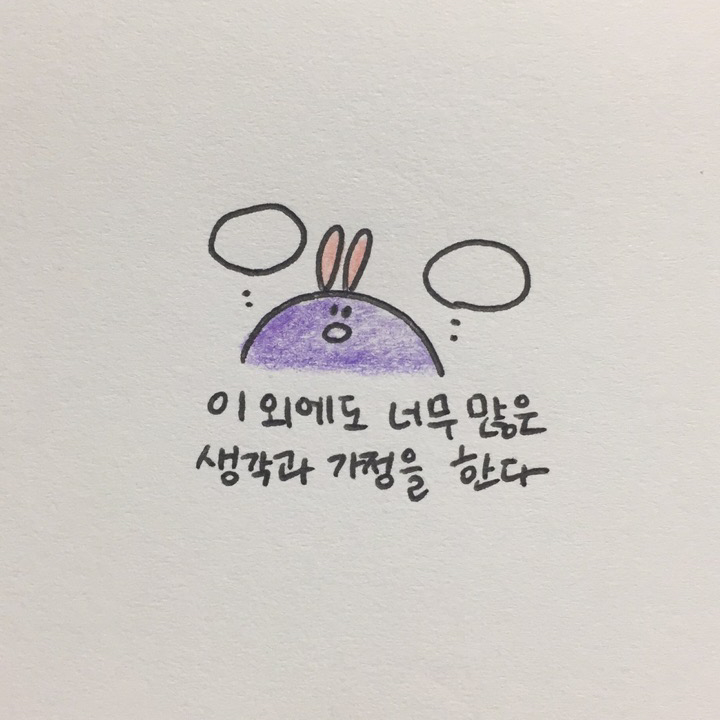 이 외에도 너무 많은
생각과 가정을 한다